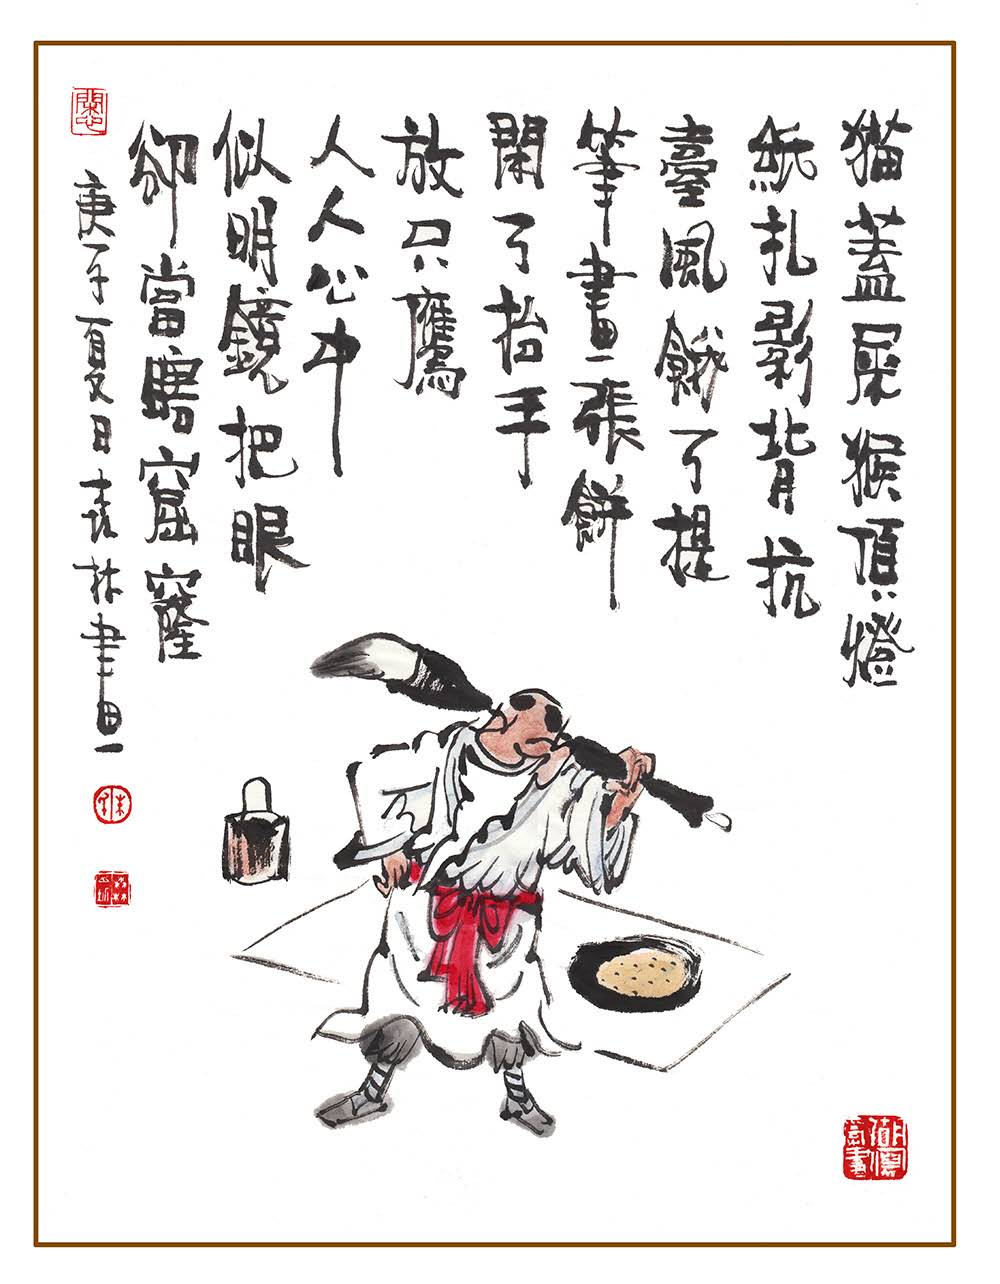 猫蓋屎猴頂燈
紙扎影背抗
臺風餓了提
筆畫張餅
閑了抬手
放只鷹
人人心中
似明鏡把眼
卻當瞎窟窿
庚子夏日林畫